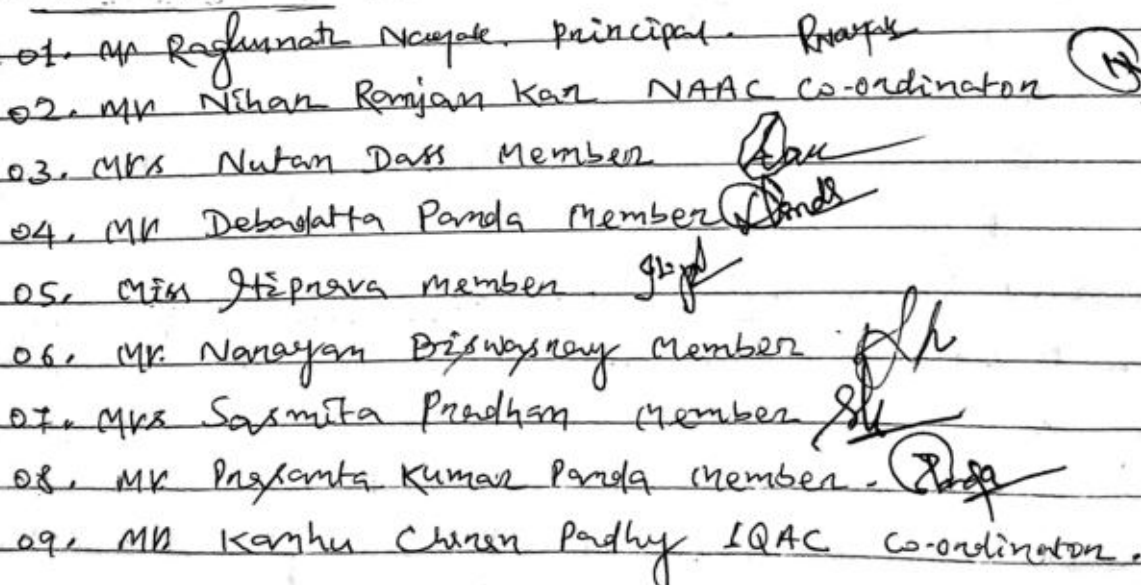 01. Mr Raghunath Nayak. Principal. RNayak
02. Mr Nihar Ranjan Kar NAAC Co-ordinator
03. Mrs Nutan Dass Member
04. Mr Debadatta Panda Member
05. Miss Itiprava Member
06. Mr. Narayan Biswasray Member
07. Mrs Sasmita Pradhan Member
08. Mr Prasanta Kumar Panda Member.
09. Mr Kanhu Charan Padhy IQAC Co-ordinator.